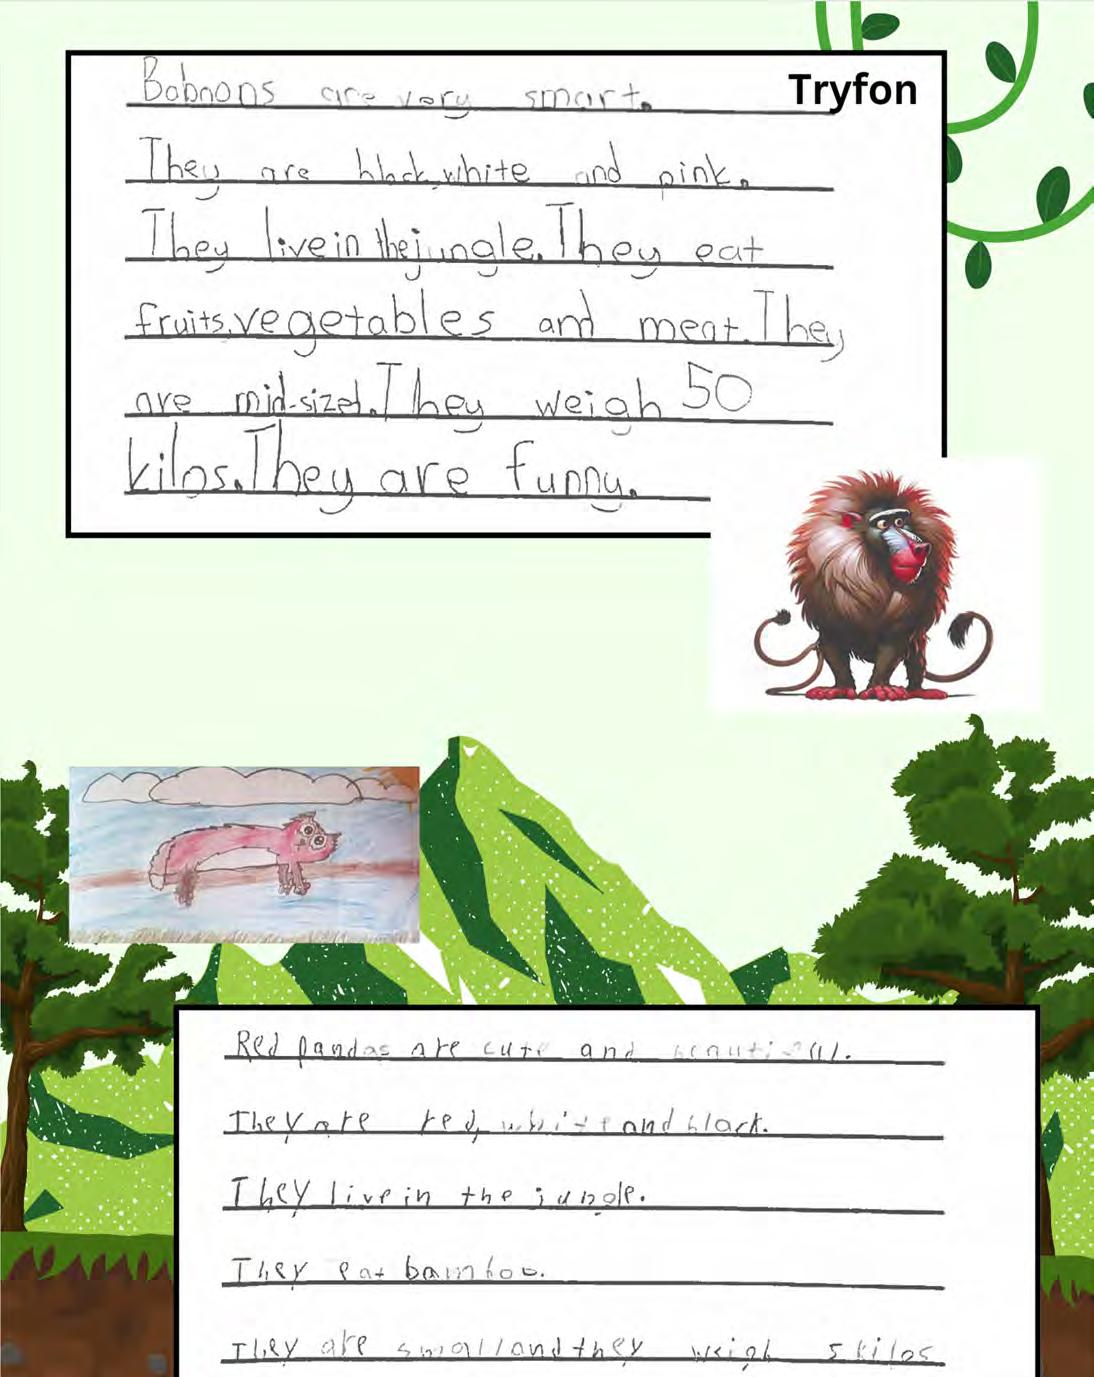 Tryfon
Babnons are very smart.
They are black,white and pink.
They live in the jungle.They eat
fruits,vegetables and meat.They
are mid-sized.They weigh 50
kilos.They are funny.
Red pandas are cute and beautiful.
They are red, white and black.
They live in the jungle.
They eat bamboo.
They are small and they weigh 5 kilos